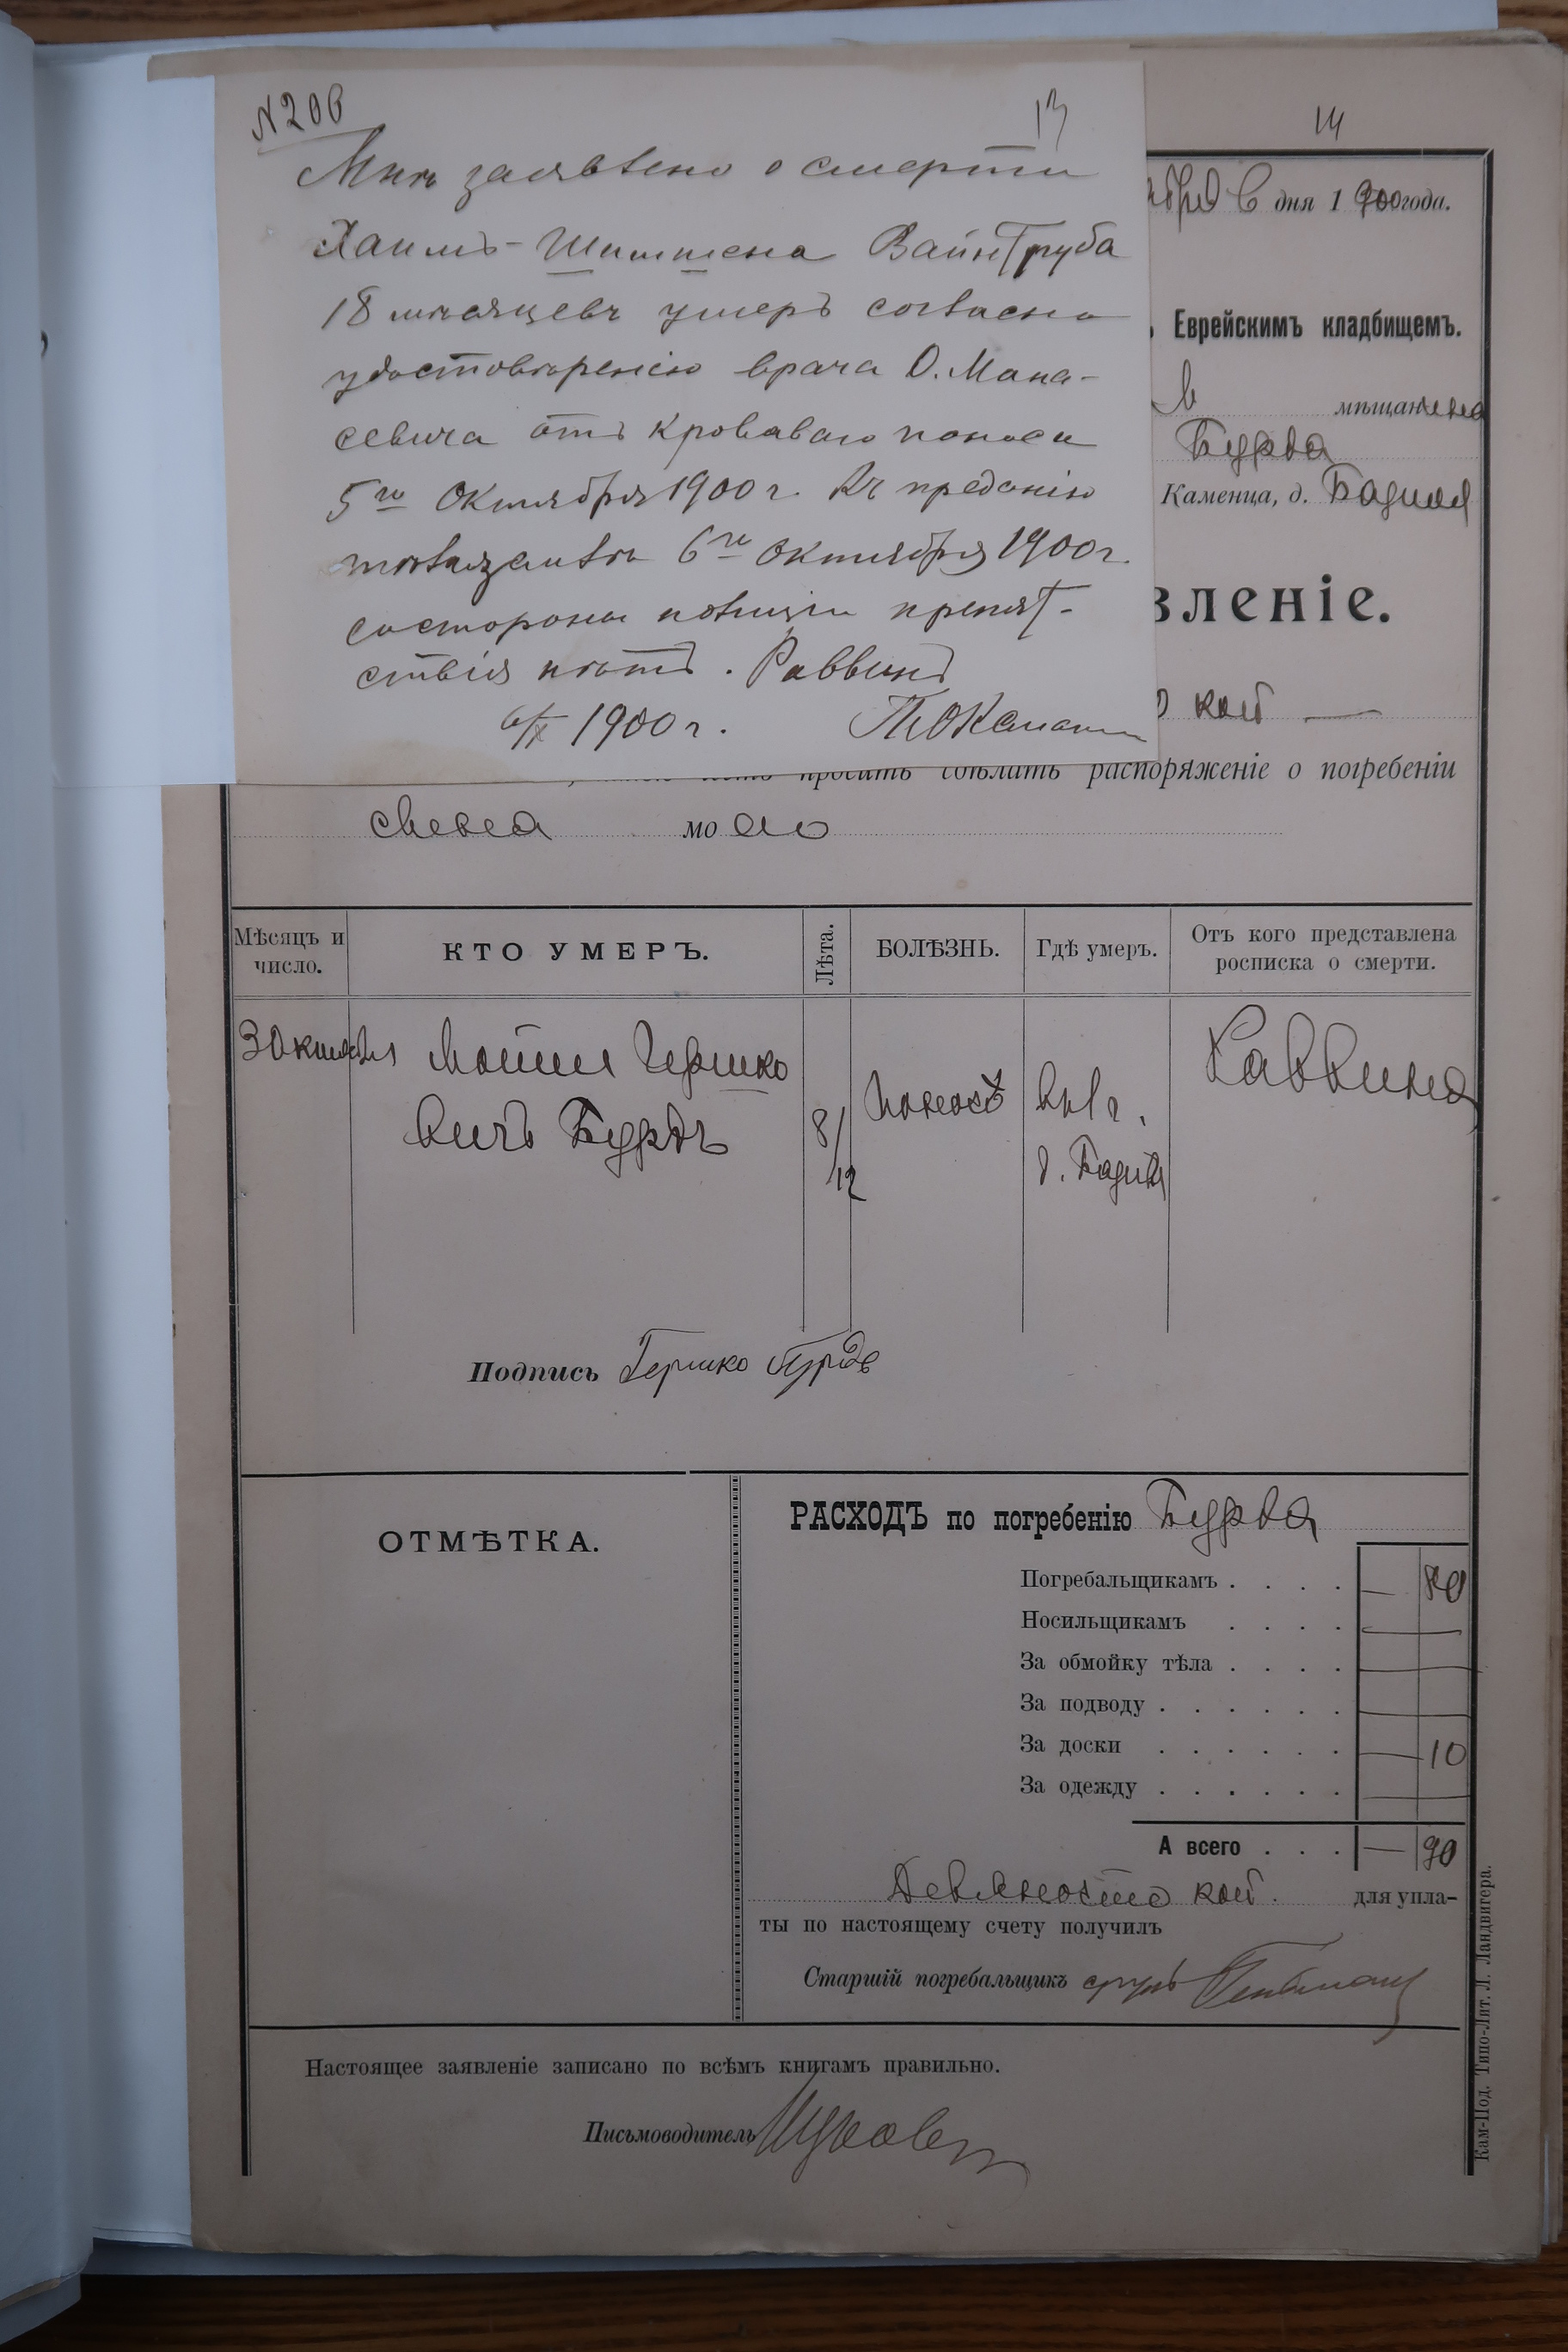 N 206
13
Мнѣ заявлено о смерти
Хаимъ-Шимшена Вайнтруба
18 мѣсяцевъ умеръ согласно
удостовѣренію врача О. Мана-
севича отъ кроваваго поноса
5го Октября 1900 г. Къ преданію
тѣла землѣ 6го Октября 1900 г.
со стороны полиціи препят-
ствія нѣтъ. Раввинъ
6/X 1900 г.
14
дня 1900 года.
Еврейскимъ кладбищемъ.
мѣщанина
Бурда
Каменца, д.
вленіе.
коп —
просить сдѣлать распоряженіе о погребеніи
сына моего
Мѣсяцъ и число.
КТО УМЕРЪ.
Лѣта.
БОЛѢЗНЬ.
Гдѣ умеръ.
Отъ кого представлена росписка о смерти.
3 Октября
Гершко
вичъ Бурдъ
8/12
Поносъ
Раввина
Подпись Гершко Бурдъ
ОТМѢТКА.
РАСХОДЪ по погребенію Бурда
Погребальщикамъ . . . . — 80
Носильщикамъ . . . . —
За обмойку тѣла . . . . —
За подводу . . . . . . —
За доски . . . . . . — 10
За одежду . . . . . . —
А всего . . . — 90
Девяносто коп. для упла-
ты по настоящему счету получилъ
Старшій погребальщикъ
Настоящее заявленіе записано по всѣмъ книгамъ правильно.
Письмоводитель
Кам-Под. Типо-Лит. Л. Ландвигера.